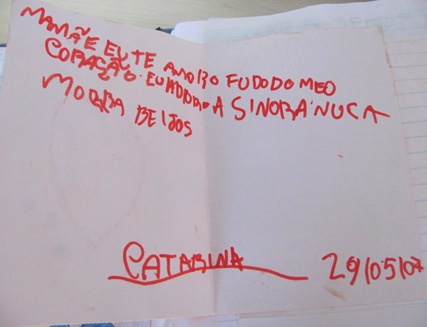 MAMÃE EU TE AMO RO FUDO DO MEO
CORAÇÃO. EU ADORO A SINORA NUCA
MORRA BEIJOS
CATARINA
29/05/07